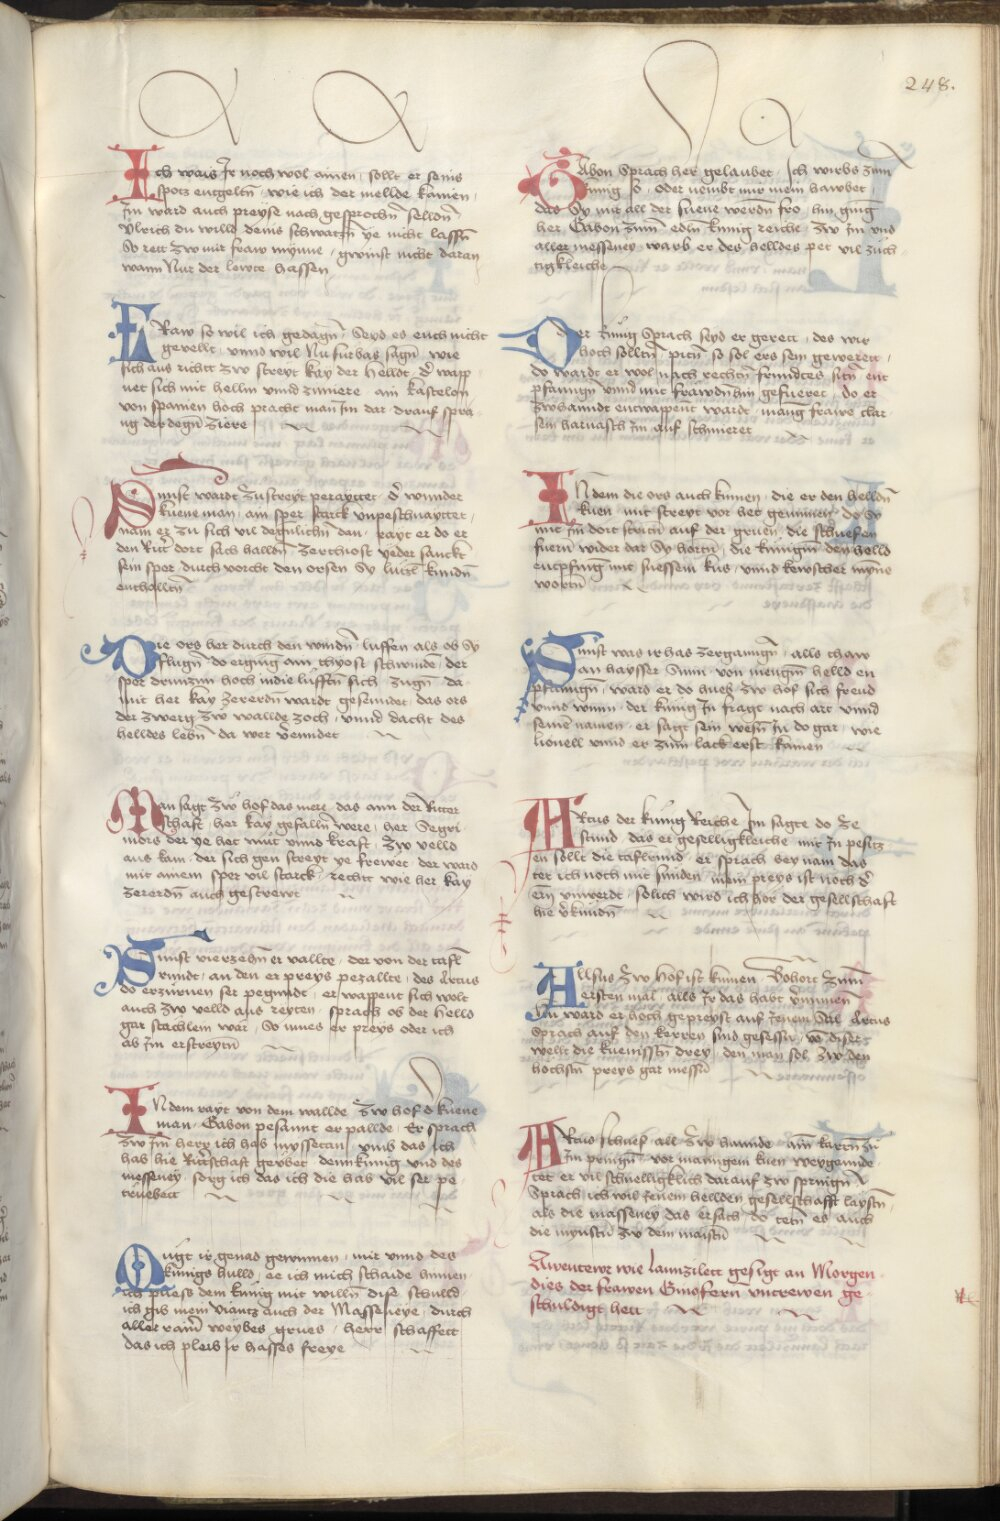 248.
Ich wais Ir noch wol ainen, sollt er seins
spotz entgeltn, wie ich der mellde kamen,
Im ward auch preyse nach gesprochn selldn,
Ulrich du willd deins schwatzn ye nicht lassn
So rett zw mit fraw mynne, gwinst nicht daran
wann Nur der lewte hassen
FRaw so wil ich gedagn, Seyd es euch nicht
gevellt, unnd wil Nu furbas sagn, wie
sich aus richtt zw streyt kay der helldt, d' wapp
net sich mit hellm unnd zimiere, ain kastelon
von spanien hoch pracht man Im dar, drauf spra
ng der degn ziere
Sunst wardt zu streyt perayttet, d' wunder
kuene man, ain sper starck unpeschnayttet,
nam er zu sich vil degnlichn dan, rayt er do er
den Rit' dort sach halldn, zerthiost yeder sanckt
sein sper durch vorcht den orsen Sy lutzl kundn
entholltn
Die ors her durch den windn, luffen als ob Sy
flugn, do erging ain thyost schwinde, der
sper drumzun hoch in die lufftn sich zugn, da
mit her kay zererdn wardt gesendet, das ors
der zwerg zw wallde zoch, unnd dacht des
helldes lebn da wer v'enndet
Man sagt zw hof das mere, das ann der Ritter
schaft, her kay gefalln were, her Segri
mors der ye het mut unnd kraft, zw velld
aus kam, der sich gen streyt ye frewet, der ward
mit ainem sper vil starck, rechtt wie her kay
zererdn auch gestrewt
Sunst vierzehn er vallte, der von der tafl
rundt, an den er preys pezallte, des Artus
do erzürnen ser pegundt, er wappent sich wolt
auch zw velld aus reyten, sprach ob der helld
gar stachlein wär, So mues er preys oder ich
ab Im erstreytn
INdem rayt von dem wallde, zw hof d' kuene
man, Gabon pesannt er pallde, Er sprach
zw Im herr ich hab myssetan, umb das ich
hab hie Rit'schaft geubet, dem kunig und des
messeney, sorg ich das ich die hab vil ser pe
truebett
Mugt ir genad gewinnen, mir unnd des
kunigs hulld, ee ich mich schaide hinnen
ich puess dem kunig mit willn dise schulld
ich gib mein viantz auch der Masseneye, durch
aller rain' weybes grues, herr schaffett
das ich pleib ir hasses freye
GAbon sprach her gelaubet, Ich wirbs zum
kunig so, oder nembt mir mein hawbet,
das Sy mit all der suene werdn fro, hin ging
her Gabon zum edln kunig reiche, zw Im und
aller messeney, warb er des helldes pet vil zuch
tigkleiche
Der kunig sprach seyd er gerett, des wir
hoch solltn pittn so sol ers sein gewerett,
do wardt er wol nach rechtn frundtes sitn, ent
pfanngn unnd mit frawdn hin gefueret, do er
zwhanndt entwappent wardt, manng frawe clar
sein harnasch Im auf schnueret
INdem die ors auch kumen, die er den helldn
kuen, mit streyt vor het genumen, do Sy
mit Im dort stritn auf der gruen, die schuefen
fuern wider dar Sy hortn, die kunigin den helld
entpfing mit suessem kus, unnd kewscher mynne
wortn
Sunst was ir has zerganngn, alls thaw
an haysser Sunn, von mengm helld en
pfanngn, ward er do hueb zw hof sich freud
unnd wunn, der kunig In fragt nach art unnd
seinen namen, er sagt sein wesn In do gar, wie
lionell unnd er zum lack erst kamen
ARtus der kunig Reiche, Im sagte do ze
stund, das er geselligkleiche, mit In pesitz
en sollt die taflrund, er sprach bey nam das
ter ich noch mit sunden, mein preys ist noch d'
ern unwerdt, solich wird ich hor der gesellschaft
hie v'kundn
ALlsus zw hof ist kumen, Bohort zum
ersten mal, alls Ir das habt v'numen
Im ward er hoch gepreyst auf Jenem Sal, Artus
sprach auf den kerren sind gesessn, vo diser
wellt die kuenisstn drey, den man sol zw den
hochstn preys gar messn
ARtus schuef all zw hannde, ain karrn zu
Im pringn, vor manngem kuen weygannde,
tet er vil schnelligklich darauf zw springn,
Sprach, ich wil Jenem hellden gesellschafft laystn,
als die masseney das ersach, do tetn es auch
die mynstn zw dem maistn
Awentewr wie lannzilett gesigt an Morgen
dies der frawen Ginofern untrewen ge
schuldigt hett